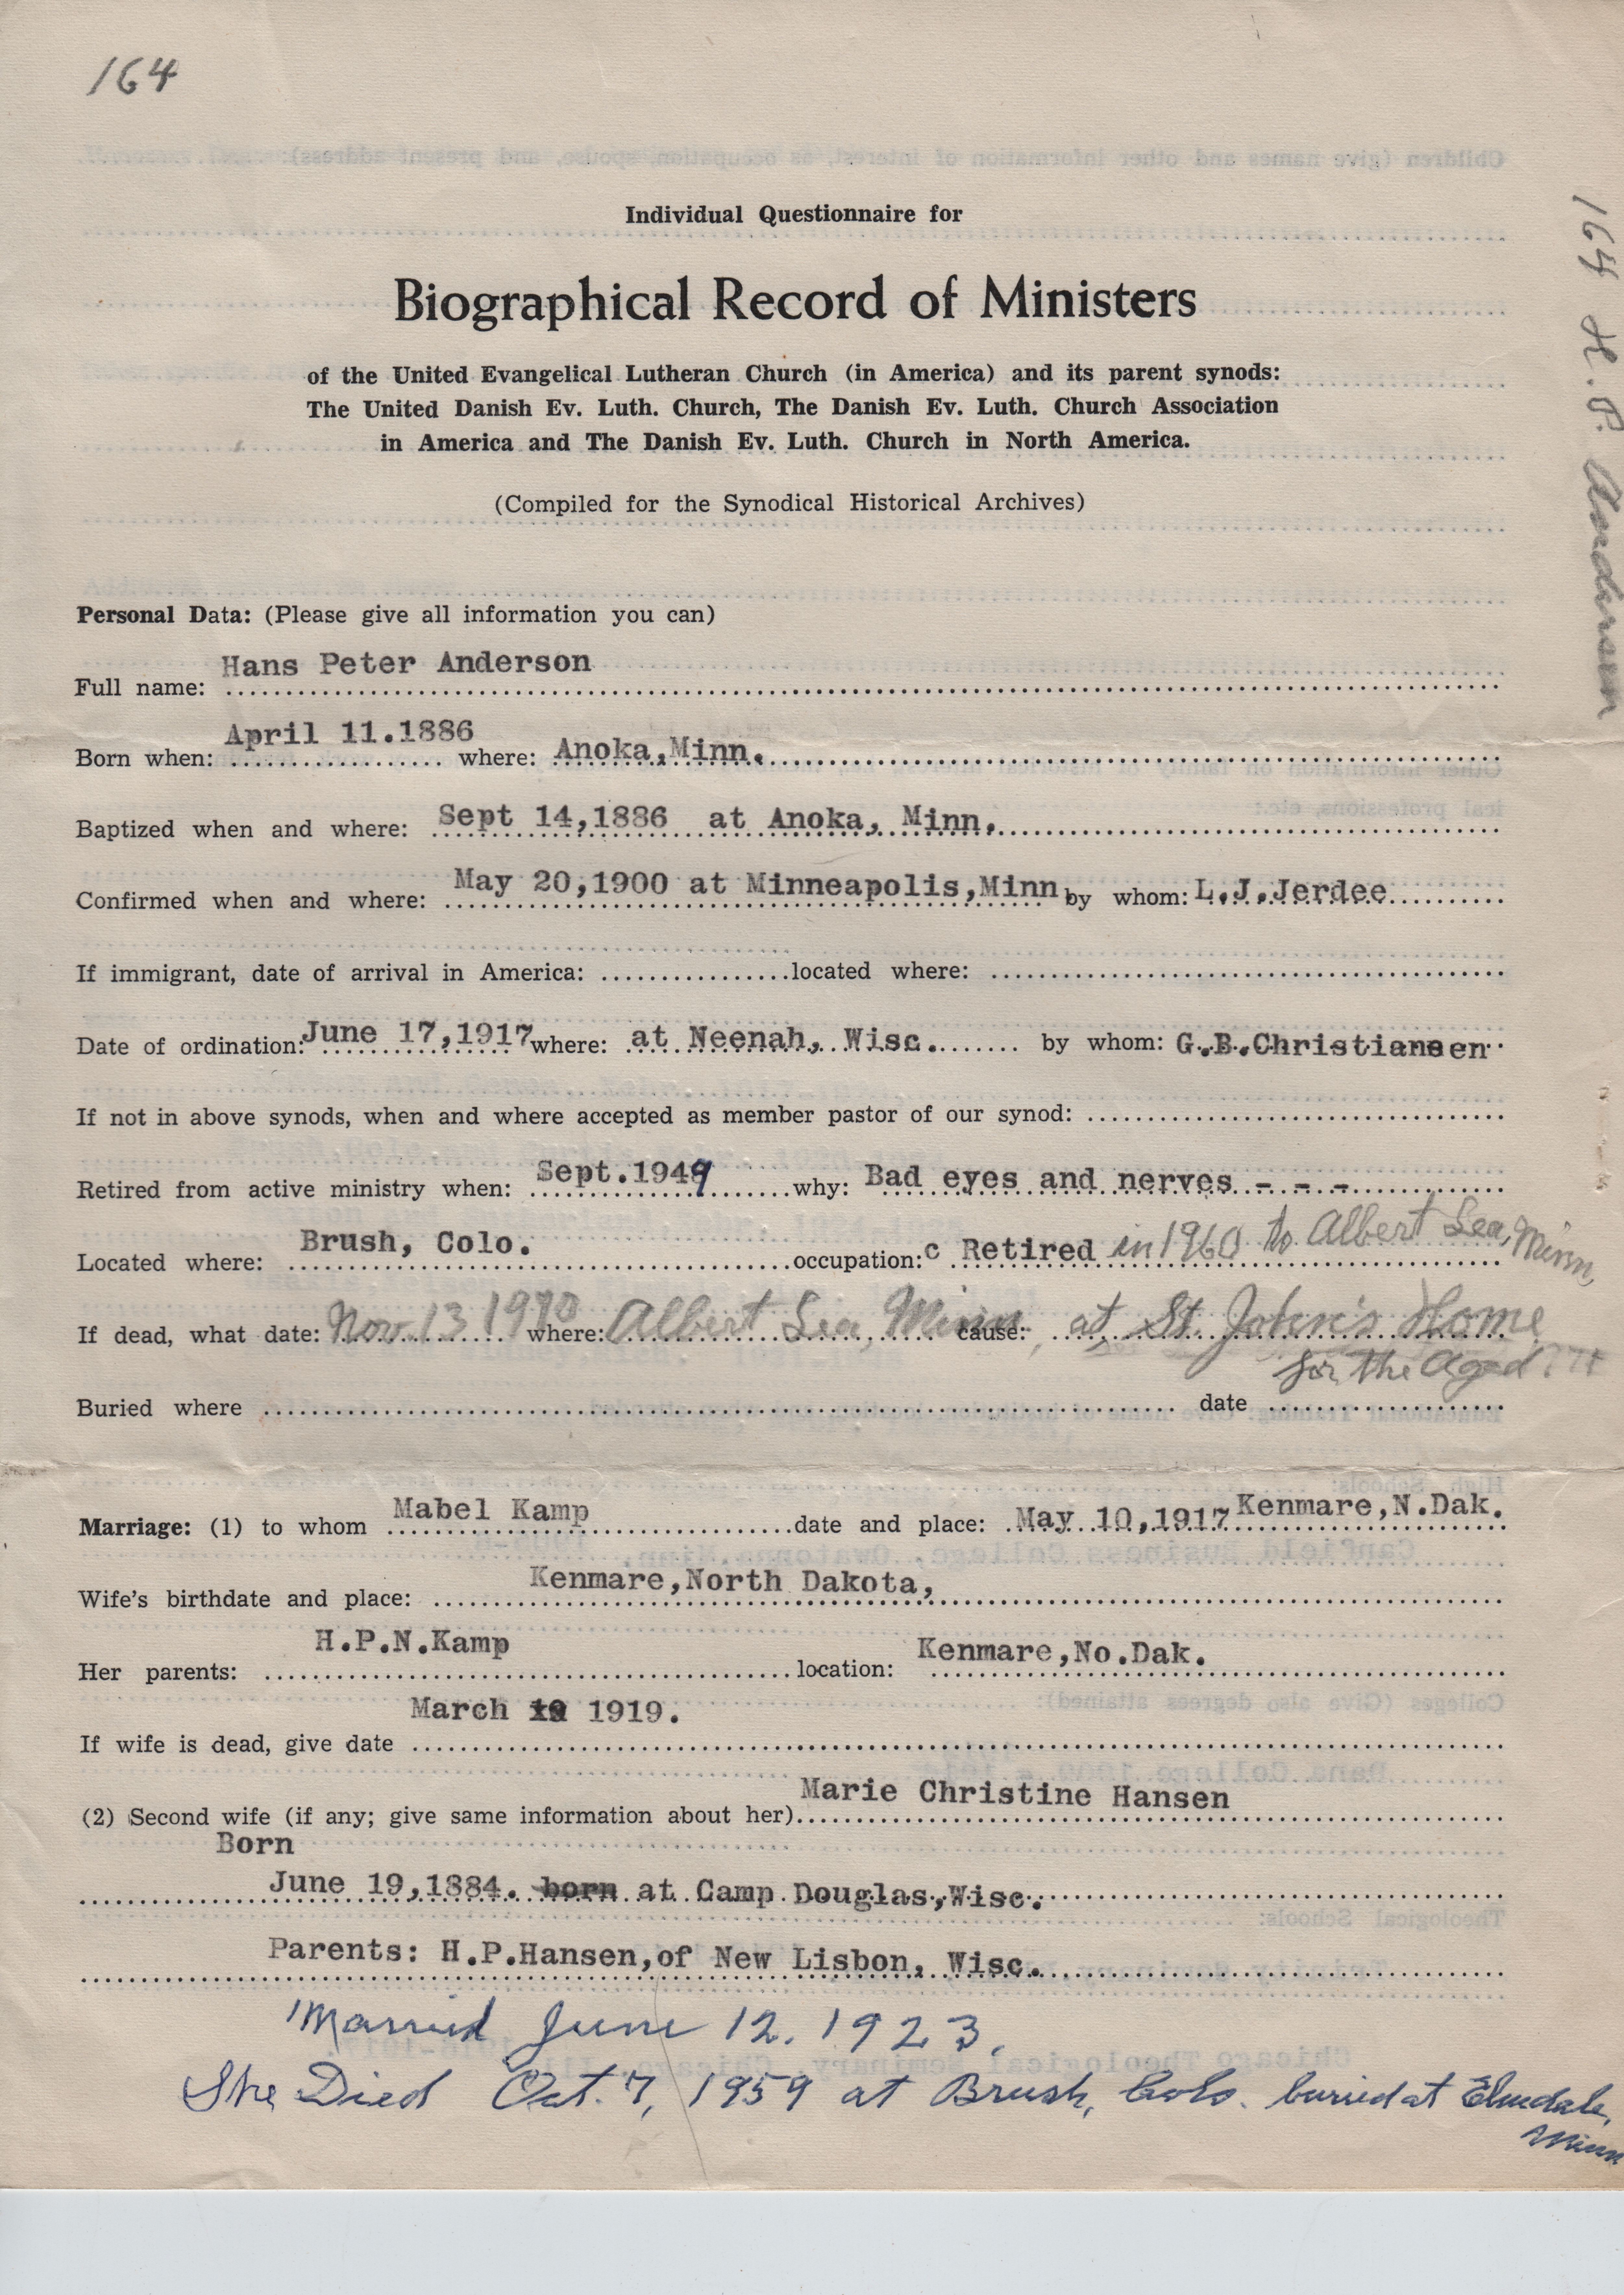 164
164 H. P. Anderson
Individual Questionnaire for
Biographical Record of Ministers
of the United Evangelical Lutheran Church (in America) and its parent synods:
The United Danish Ev. Luth. Church, The Danish Ev. Luth. Church Association
in America and The Danish Ev. Luth. Church in North America.
(Compiled for the Synodical Historical Archives)
Personal Data: (Please give all information you can)
Full name: Hans Peter Anderson
Born when: April 11.1886 where: Anoka,Minn.
Baptized when and where: Sept 14,1886 at Anoka, Minn.
Confirmed when and where: May 20,1900 at Minneapolis,Minn by whom: L.J.Jerdee
If immigrant, date of arrival in America: located where:
Date of ordination: June 17,1917 where: at Neenah, Wisc. by whom: G.B.Christiansen
If not in above synods, when and where accepted as member pastor of our synod:
Retired from active ministry when: Sept.1949 why: Bad eyes and nerves - - -
Located where: Brush, Colo. occupation: c Retired in 1960 to Albert Lea, Minn
If dead, what date: Nov. 13 1970 where: Albert Lea, Minn, cause: at St. John's Home
for the Aged.
Buried where date
Marriage: (1) to whom Mabel Kamp date and place: May 10,1917 Kenmare,N.Dak.
Wife's birthdate and place: Kenmare,North Dakota,
Her parents: H.P.N.Kamp location: Kenmare,No.Dak.
If wife is dead, give date March 1919.
(2) Second wife (if any; give same information about her) Marie Christine Hansen
Born
June 19,1884. born at Camp Douglas,Wisc.
Parents: H.P.Hansen,of New Lisbon, Wisc.
Married June 12. 1923.
She Died Oct. 7, 1959 at Brush, Colo. buried at Elmdale,
Minn